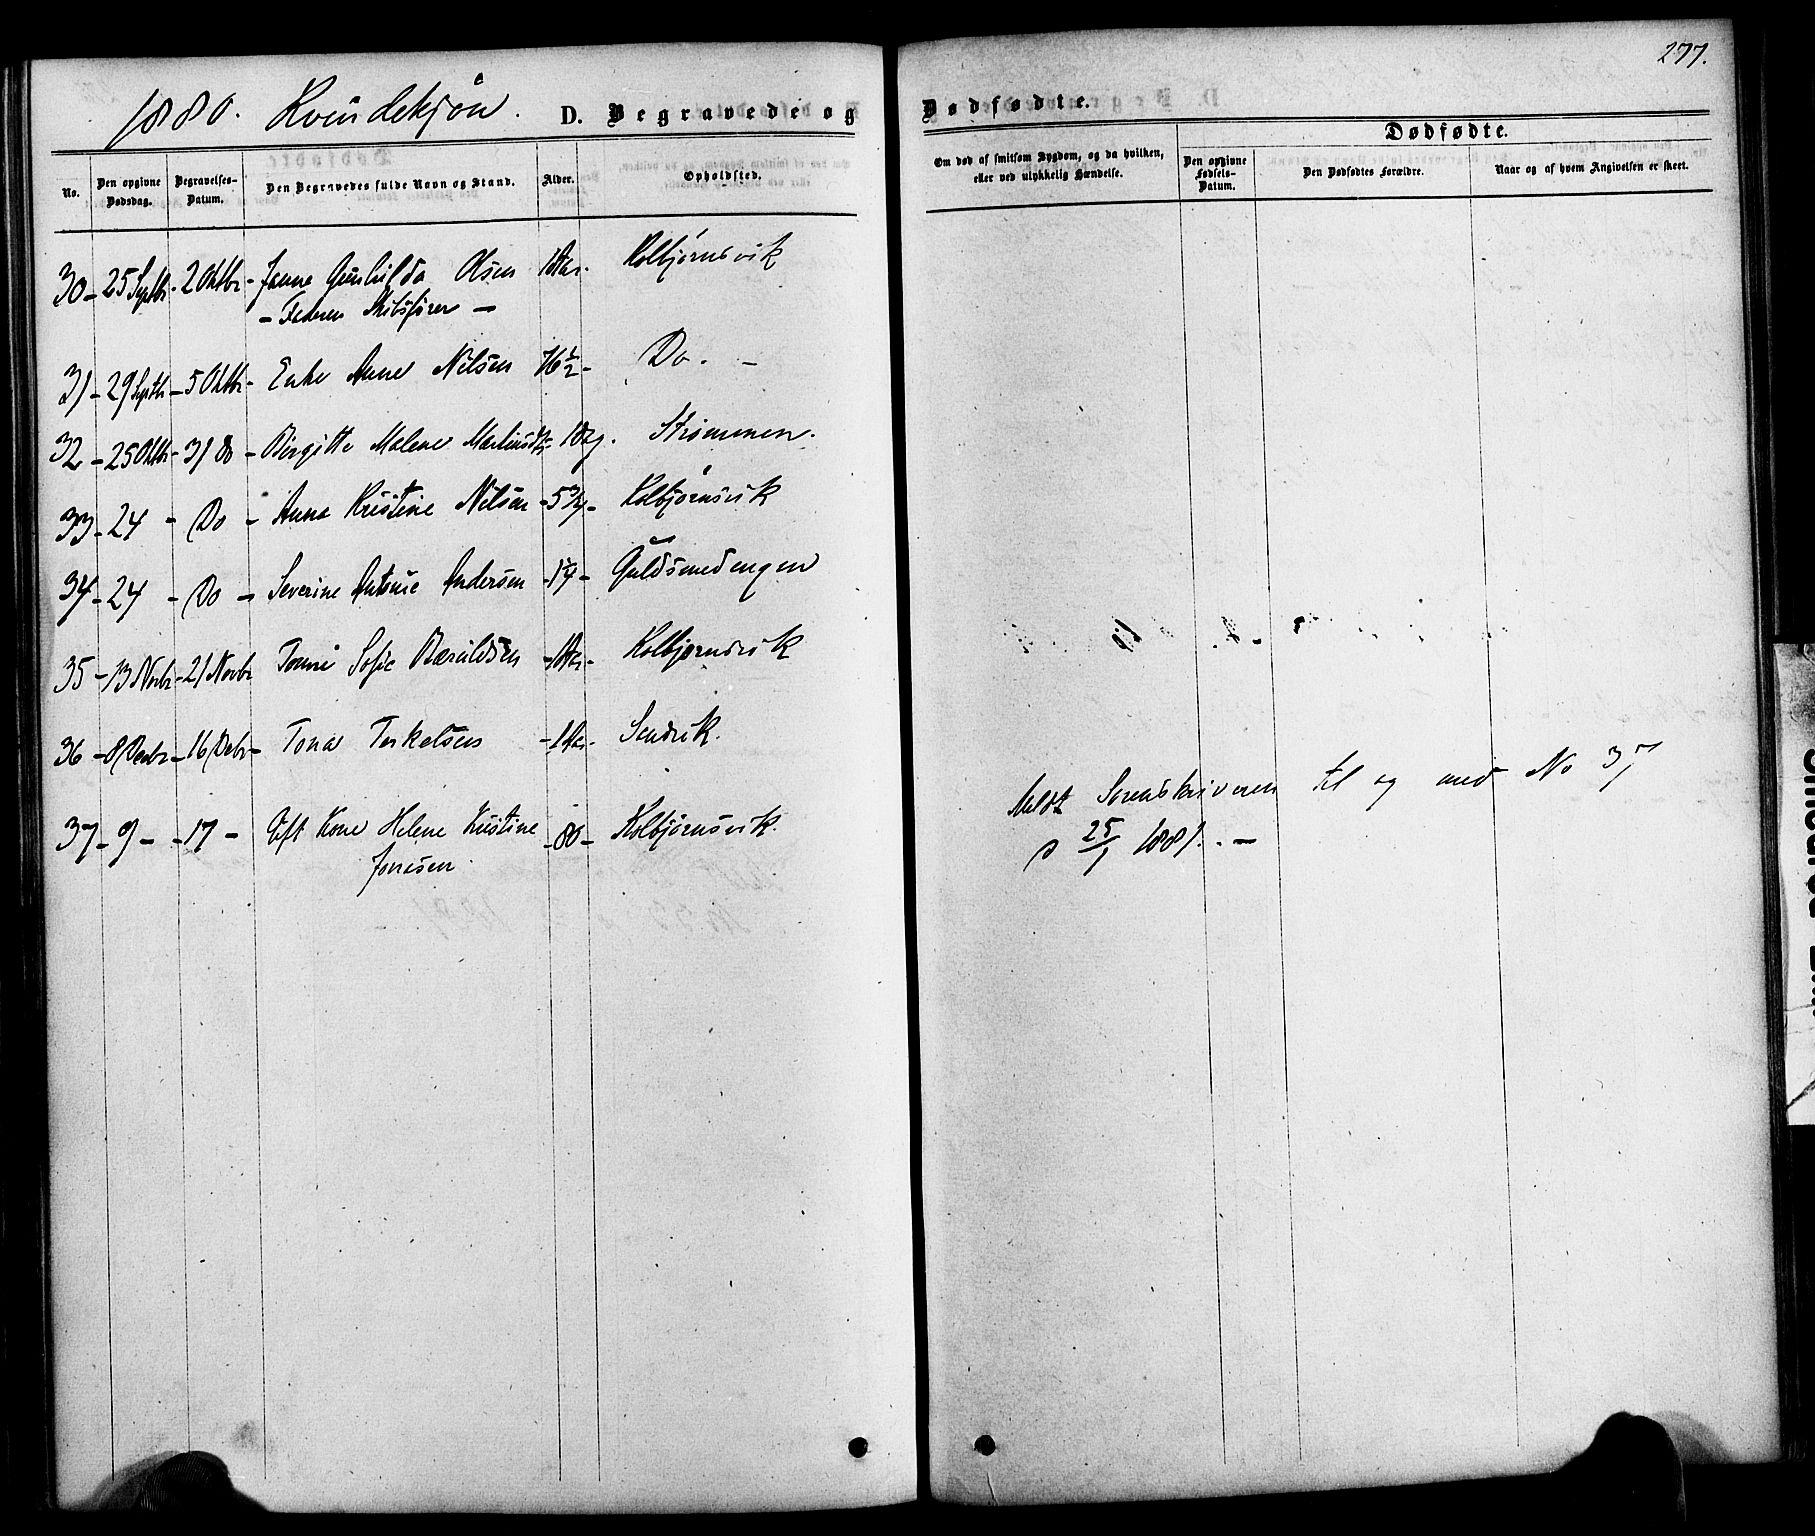 277.
1880. Kvindekjøn. D. Begravede og Dødfødte.
Dødfødte.
No. Den opgivne Dødsdag. Begravelses-Datum. Den Begravedes fulde Navn og Stand. Alder. Opholdsted. Om død af smitsom Sygdom, og da hvilken, eller ved ulykkelig Hændelse. Den opgivne Fødsels-Datum. Den Dødfødtes Forældre. Naar og af hvem Angivelsen er skeet.
30 - 25 Septbr - 2 Oktbr - Janne Gunhilda Olsen 1 Aar. Kolbjørnsvik
- Faderen Skibsfører -
31 - 29 Septbr - 5 Oktbr - Enke Anne Nilsen 76 ½ - Do. -
32 - 25 Oktbr - 31 Do - Birgitte Malene Martinsdtr - 1 Dag. Strømmen.
33 - 24 - Do - Anna Kristine Nilsen - 5 ¾ - Kolbjørnsvik
34 - 24 - Do - Severine Antonie Andersen - 1 ¼ - Guldsmedengen
35 - 13 Novbr - 21 Novbr Sofie - Kolbjørnsvik
36 - 8 Decbr - 16 Decbr - Tona Terkelsen - 1 Aar - Sandvik.
37 - 9 - - 17 - Gift Kone Helene Kristine - 80 - Kolbjørnsvik.
Jonasen.
Meldt Sorenskriveren til og med No 37
d 25/1 1881. -